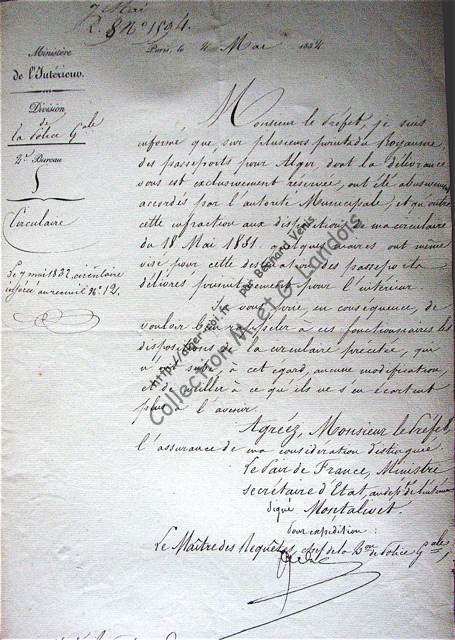 7 Mai
R. 8 N° 1594.
Paris, le 4 Mai 1832
Ministère
de l'Intérieur.
Division
de
la Police Gale
2e Bureau
Circulaire
Le 7 mai 1832, circulaire
insérée au recueil N° 12.
Monsieur le Préfet, je suis
informé que sur plusieurs points du Royaume
des passeports pour Alger dont la délivrance
vous est exclusivement réservée, ont été abusivement
accordés par l'autorité Municipale; et qu'outre
cette infraction aux dispositions de ma circulaire
du 18 Mai 1831. quelques maires ont même
visé pour cette destination des passeports
délivrés primitivement pour l'intérieur
Je vous prie, en conséquence, de
vouloir bien rappeler à ces fonctionnaires les
dispositions de la circulaire précitée, qui
n'a subi, à cet égard, aucune modification,
et de veiller à ce qu'ils ne s'en écartent
pour l'avenir.
Agréez, Monsieur le Préfet,
l'assurance de ma considération distinguée
Le Pair de France, Ministre
secrétaire d'Etat, au dépt. de l'intérieur
signé Montalivet.
Pour expédition:
Le Maître des Requêtes, chef de la Don de Police Gale,
http://alger-roi.fr par Bernard Venis
Collection M. et G. Langlois